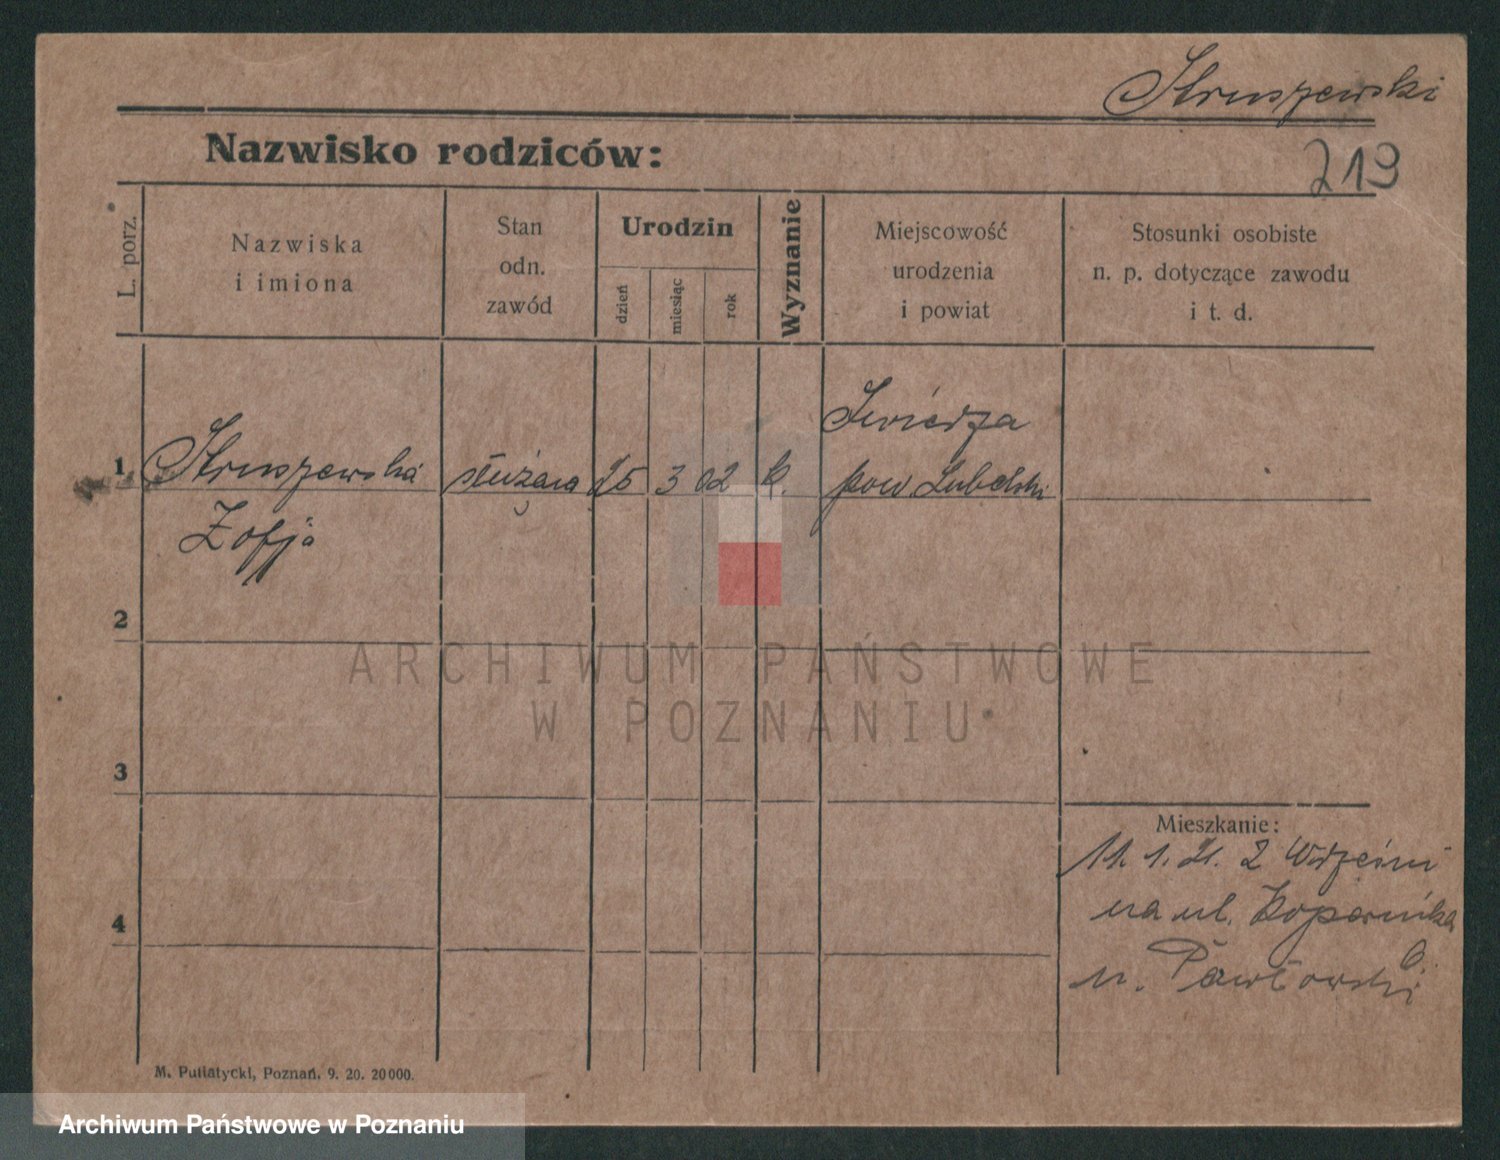 Struszewski
219
Nazwisko rodziców:
L. porz.
Nazwiska
i imiona
Stan
odn.
zawód
Urodzin
dzień
miesiąc
rok
Wyznanie
Miejscowość
urodzenia
i powiat
Stosunki osobiste
n. p. dotyczące zawodu
i t. d.
1
Struszewska
Zofja
służąca
25
3
02
k.
pow Lubelski
2
3
4
Mieszkanie:
11. 1. 21. z Wrześni
na ul. Kopernika
u. Pawłowski
M. Putiatycki, Poznań. 9. 20. 20000.
ARCHIWUM PAŃSTWOWE
W POZNANIU
Archiwum Państwowe w Poznaniu